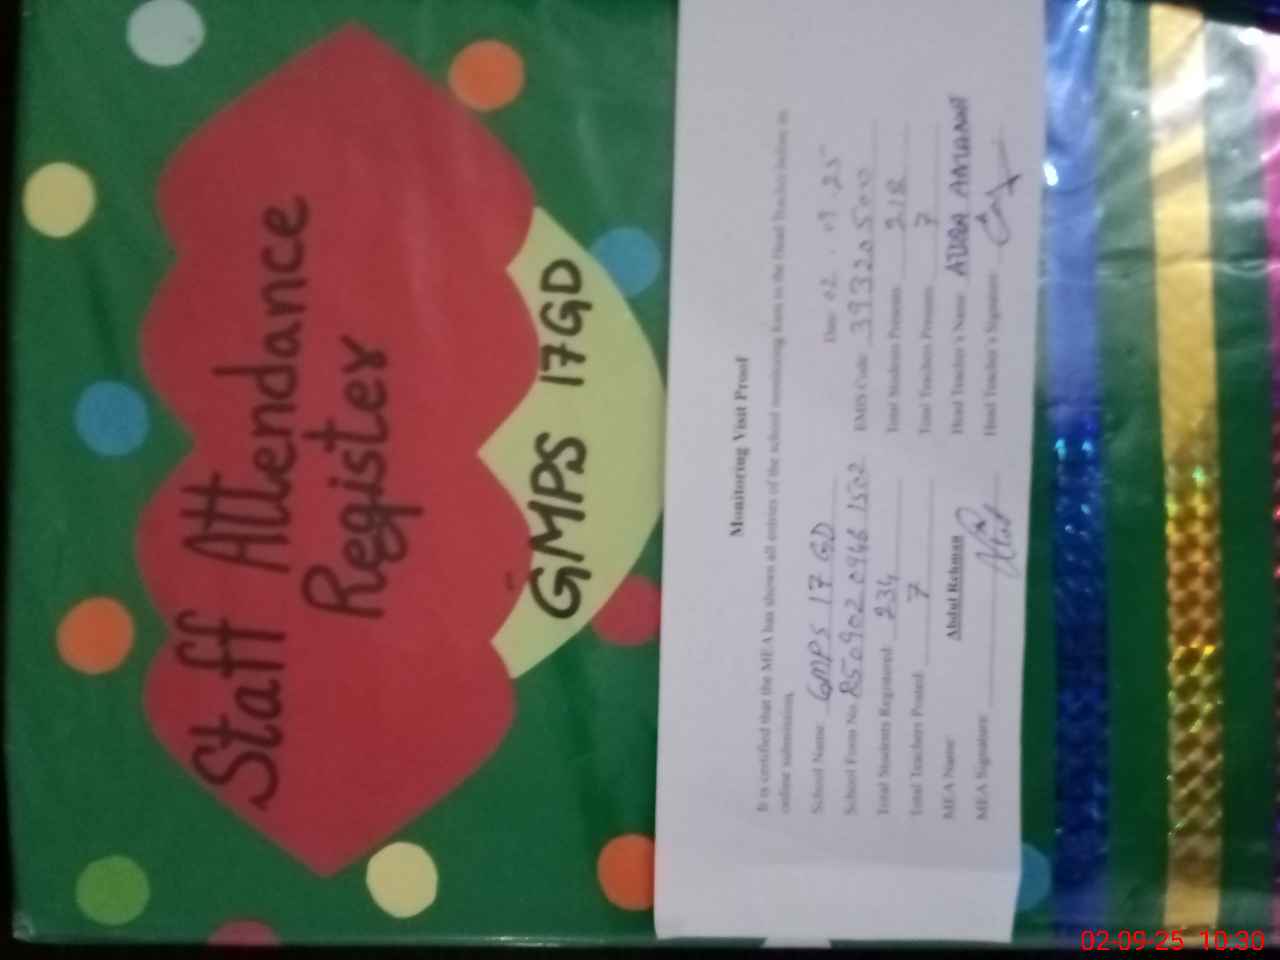 Staff Attendance
Register
GMPS 17GD
Monitoring Visit Proof
It is certified that the MEA has shown all entries of the school monitoring form to the Head Teacher before its
online submission.
Date 02 . 09 . 25
School Name: GMPS 17 GD
EMIS Code: 39320500
School Form No. 850902 0946 1502
Total Students Present: 218
Total Students Registered: 234
Total Teachers Present: 7
Total Teachers Posted: 7
Head Teacher's Name:
MEA Name: Abdul Rehman
Head Teacher's Signature:
MEA Signature:
02-09-25 10:30